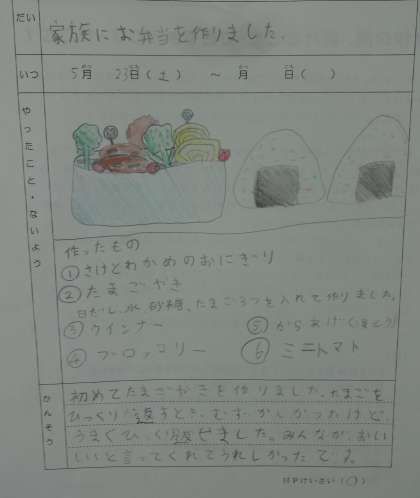 だい 家族にお弁当を作りました。
いつ 5月 23日(土) ～ 月 日( )
やったこと・ないよう
作ったもの
①さけとわかめのおにぎり
②たまごやき
白だし、水、砂糖、たまご3つを入れて作りました。
③ウインナー ⑤からあげ
④ブロッコリー ⑥ミニトマト
かんそう
初めてたまごやきを作りました。たまごを
ひっくり返すとき、むずかしかったけど、
うまくひっくり返せました。みんなが、おい
しいと言ってくれてうれしかったです。
HPけいさい(○)